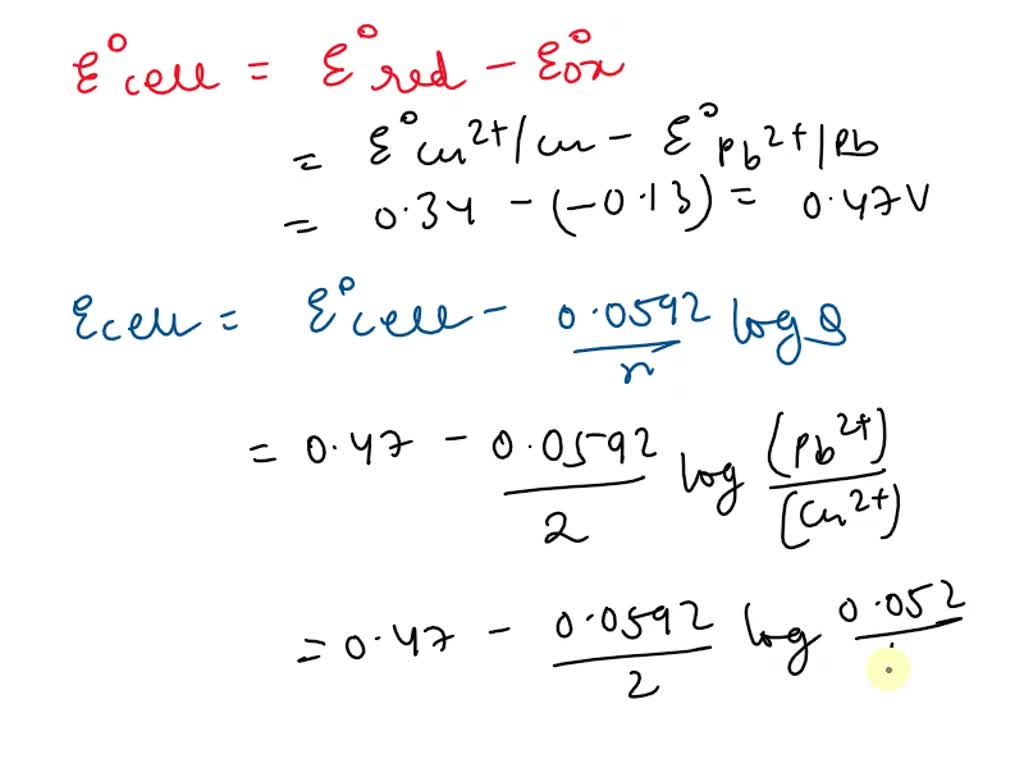 Ɛ°cell = Ɛ°red - Ɛ°ox
= Ɛ°cu2+/cu - Ɛ°Pb2+/Pb
= 0.34 - (-0.13) = 0.47 V
Ɛcell = Ɛ°cell - 0.0592/n log Q
= 0.47 - 0.0592/2 log (Pb2+)/(Cu2+)
= 0.47 - 0.0592/2 log 0.052/